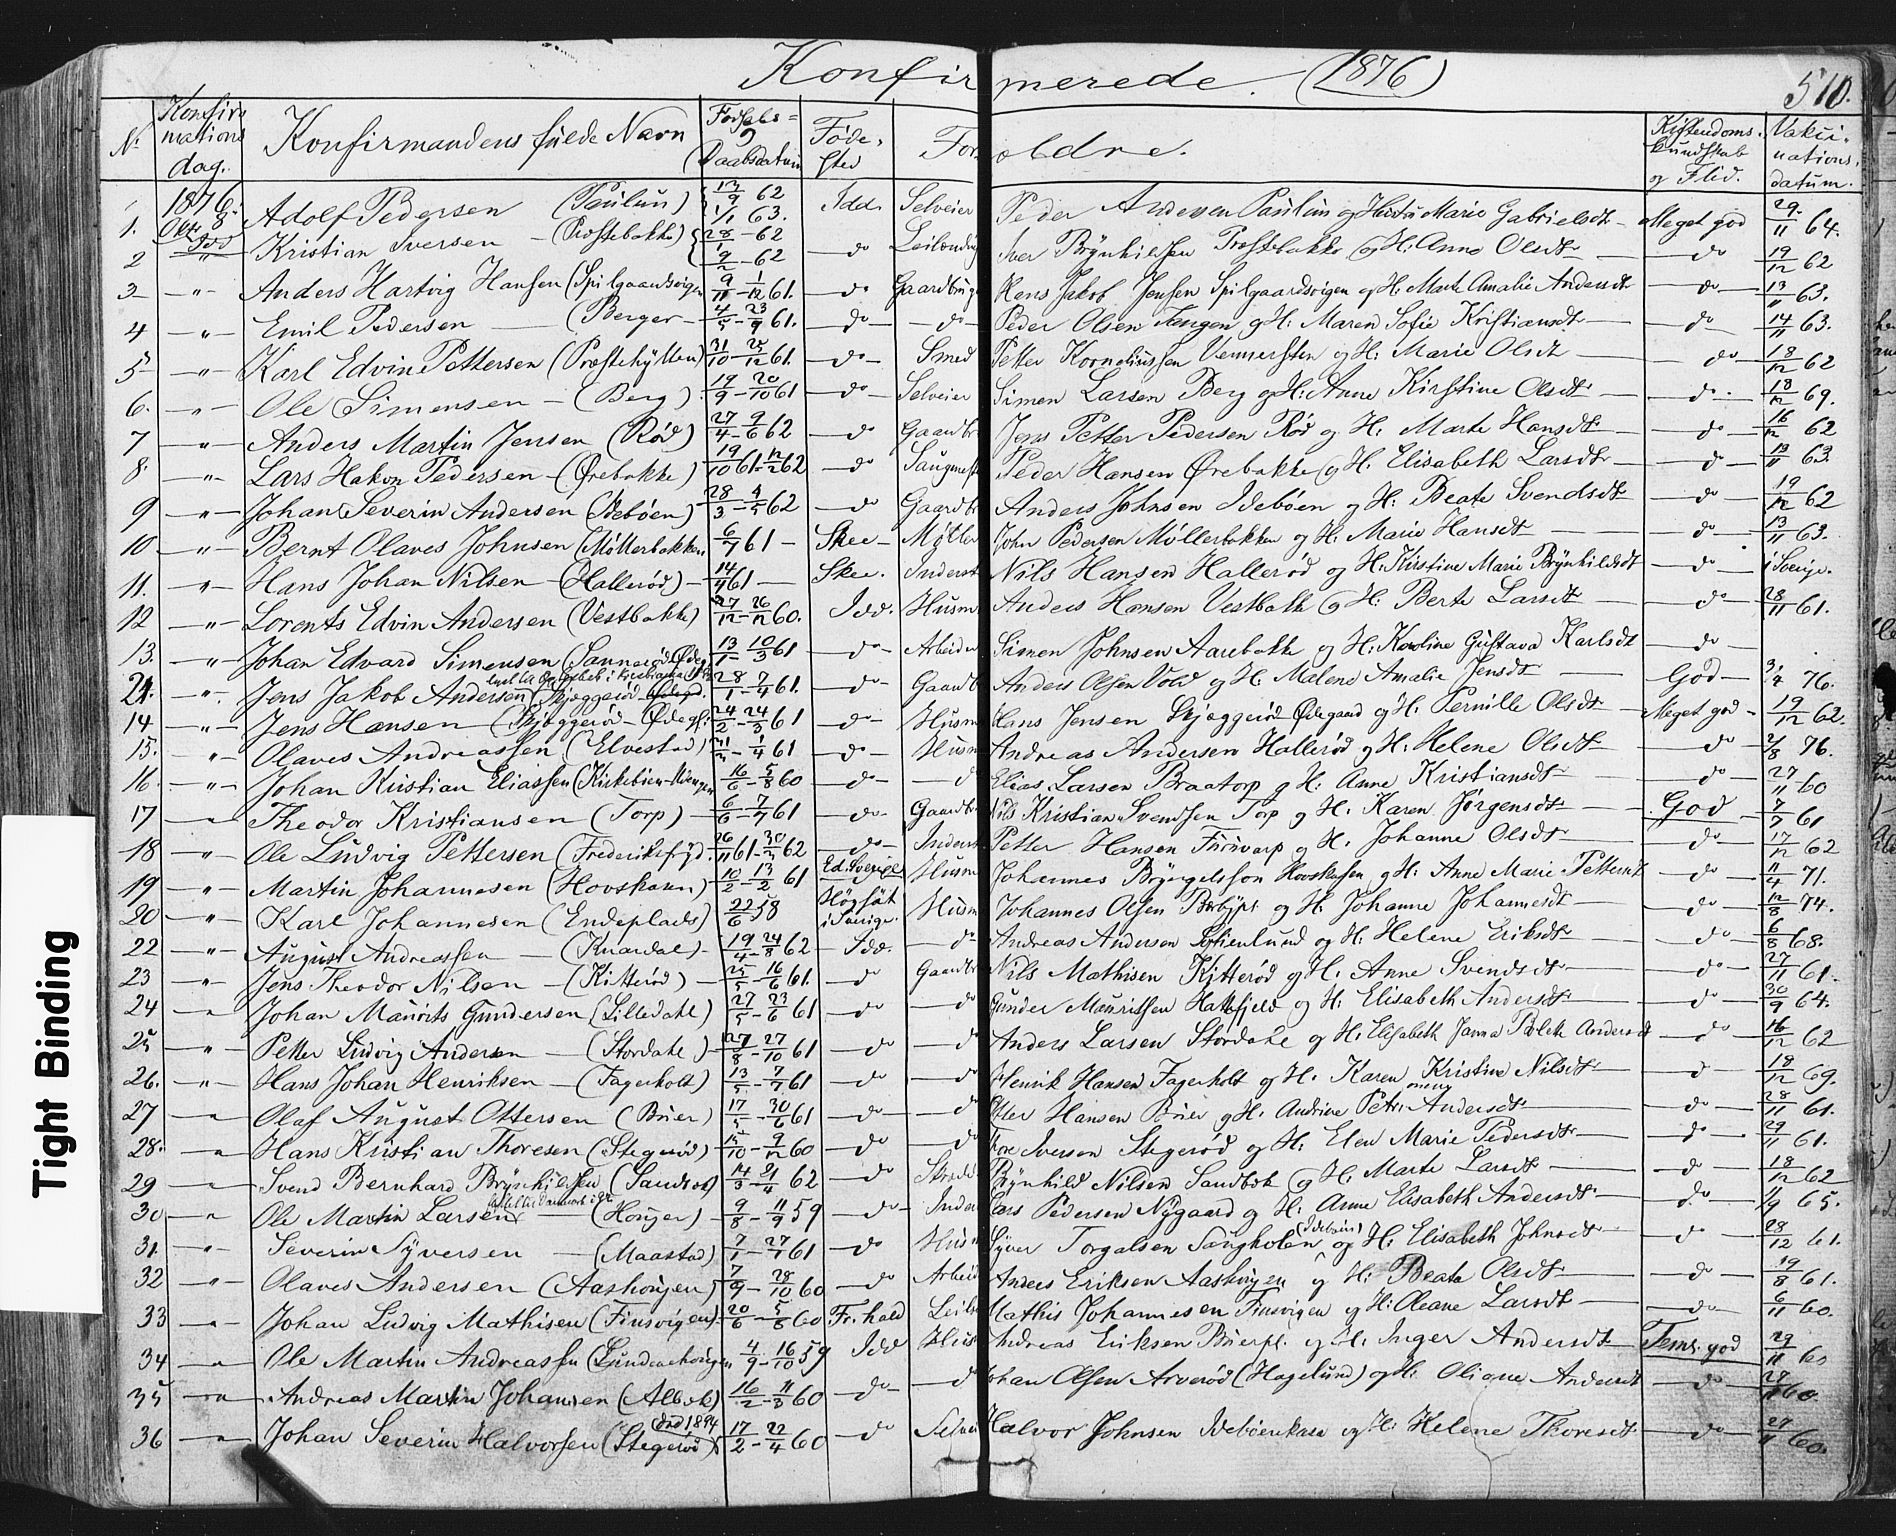 Konfirmerede. (1876)
510.
N: Konfirmations dag. Konfirmandens fulde Navn Fødsels= & Daabsdatum Føde-sted Forældre. Kristendoms-kundskab og Flid. Vaksinations datum.
1. 1876. Okt. 8 Idd Adolf Pedersen (Paulun) 13/9 62 1/1 63. Idd. Selveier Peder Andersen Paulun og Hustru Marie Gabrielsdt. Meget god 29/11 64.
2 " Kristian Iversen (Præstebakke) 28/1 - 62 9/2 - 62 do Leilænding Iver Brynhilsen Præstebakke og H. Anne Olsdt do 19/12 62
3 " Anders Hartvig Hansen (Spilgaardsvigen 9/11 - 1/12 61. do Gaardbruger Hans Jakob Jensen Spilgaardsvigen og H. Marte Amalie Andersdt do 13/11 63.
4 " Emil Pedersen (Berger 4/5 - 23/9 61. do do Peder Olsen Tangen og H. Maren Sofie Kristiansdt do 14/11 63.
5 " Karl Edvin Pettersen (Præstehytten) 31/10 - 25/12 61. do Smed Petter Korneliussen Vennersten og H. Marie Olsdt do 18/12 62
6. " Ole Simensen (Berg) 19/9 - 20/10 61 do Selveier Simen Larsen Berg og H. Anne Kirstine Olsdt do 18/12 69.
7 " Anders Martin Jensen (Rød) 27/4 - 9/6 62 do Gaardbr Jens Petter Pedersen Rød og H. Marte Hansdt do 16/12 62
8. " Lars Hakon Pedersen (Ørebakke) 19/10 61 - 12/2 62 do Saugmest Peder Hansen Ørebakke og H. Elisabeth Larsdt do 13/11 63.
9 " Johan Severin Andersen (Idebøen) 28/3 - 4/5 62 do Gaardb Anders Johnsen Idebøen og H. Beate Svendsdt do 19/12 62
10 " Bernt Olaves Johnsen (Møllerbakken 6/7 61 Skee Møller John Pedersen Møllerbakken og H. Marie Hansdt do 13/11 63.
11. " Hans Johan Nilsen (Hallerød) 14/4 61 Skee. Inderst Nils Hansen Hallerød og H. Kirstine Marie Brynhildsdt do i Sverige.
12 " Lorents Edvin Andersen (Vestbakke) 27/12 - 26/12 60. Idd. Husm Anders Hansen Vestbakk og H. Berte Larsdt do 28/11 61.
13. " Johan Edvard Simensen (Sannerød Ødeg 13/1 - 10/3 61 do Arbeider Simen Johnsen Aarebakk og H. Karoline Gustava Karlsdt do
21. " Jens Jakob Andersen (Skjeggerød Ødegd. 28/1 - 7/4 61. do Gaardb Anders Olsen Vold og H. Malene Amalie Jensdt God 3/4 76.
14 " Jens Hansen (Skjeggerød Ødegd. 24/2 - 24/3 61 do Husm Hans Jensen Skjeggerød Ødegaard og H. Pernille Olsdt Meget god 19/12 62.
15. " Olaves Andreassen (Elvestad) - 1/4 61 do Husm Andreas Andersen Hallerød og H. Helene Olsdt do 2/8 76.
16. " Johan Kristian Eliassen (Kirkebøen 16/6 - 5/8 60 do d Elias Larsen Braatorp og H. Anne Kristiansdt do 27/11 60
17 " Theodor Kristiansen (Torp) 6/6 - 7/7 61 do Gaardbr Nils Kristian Svendsen Torp og H. Karen Jørgensdt God 7/7 61
18 " Ole Ludvig Pettersen (Frederiksfryd. 26/11 61 - 30/3 62 do Inderst Petter Hansen Furuvarp og H. Johanne Olsdt do 17/12 62
19 " Martin Johannesen (Hovskaren) 10/2 - 13/2 61 Ed Sverige Husm Johannes Bryngelsson Hovskusen og H. Anne Marie Pettersdt do 11/4 71.
20 " Karl Johannesen (Endeplads) 22/6 58 Högsät i Sverige. Husm Johannes Olsen Berbypl og H. Johanne Johannesdt do 12/8 74.
22 " August Andreassen (Knardal 19/4 - 24/8 62 Idd. do Andreas Andersen Sofienlund og H. Helene Eriksdt do 6/8 68.
23 " Jens Theodor Nilsen (Kitterød) 25/5 - 16/6 61. do Gaardbr Nils Mathisen Kitterød og H. Anne Svendsdt do 27/11 61.
24 " Johan Maurits Gundersen (Lilledale) 27/5 - 23/6 61 do d Gunder Mauritssen Hattefjeld og H. Elisabeth Andersdt do 30/9 64.
25 " Petter Ludvig Andersen (Stordale) 27/8 - 27/10 61 do d Anders Larsen Stordale og H. Elisabeth Janna Andersdt do 16/12 62
26. " Hans Johan Henriksen (Fagerholt) 13/5 - 7/7 61 do d Henrik Hansen Fagerholt og H. Karen Kristine Nilsdt d 18/12 69.
27 " Olaf August Ottersen (Buer) 17/5 - 30/6 61 do do Otter Hansen Buer og H. Andrine Petr. Andersdt do 28/11 61.
28. " Hans Kristian Thoresen (Stegerød) 15/10 - 9/12 60 do d Tore Iversen Stegerød og H. Elen Marie Pedersdt do 29/11 61.
29 " Svend Bernhard Brynhilsen (Sandbæk) 14/3 - 21/4 62 do Skredd Brynhild Nilsen Sandbæk og H. Marte Larsdt do 18/12 62
30 " Ole Martin Larsen (Høujer) 9/8 - 11/9 59 do Inder Lars Pedersen Nygaard og H. Anne Elisabeth Andersdt do 1/9 65.
31. " Severin Syversen (Maastad) 7/1 - 27/1 61 do Hus Syver Torgalsen Sangholen (Idebøen) og H. Elisabeth Johnsdt do 28/12 61.
32 " Olaves Andersen (Aashoujen) 7/9 - 28/10 60 do Arbeid Anders Eriksen Aashoujen og H. Beate Olsdt do 19/8 61.
33 " Johan Ludvig Mathisen (Finsvigen) 20/6 - 5/8 60 Fr. hald Leil Mathis Johannesen Finsvigen og H. Oleane Larsdt do 6/11 60.
34 " Ole Martin Andreassen 4/9 - 16/10 59 Idd Hus Andreas Eriksen Buerpl. og H. Inger Andersdt Tem. god 29/11 60
35 " Andreas Martin Johansen (Albæk) 16/2 - 11/3 60 do d Johan Olsen Arverød (Hagelund) og H. Oliane Andersdt do 60.
36 " Johan Severin Halvorsen (Stegerød) død 1894 17/2 - 22/4 60 do Selvei Halvor Johnsen Idebøenskasa og H. Helene Thoresdt do 27/11 60.
Tight Binding